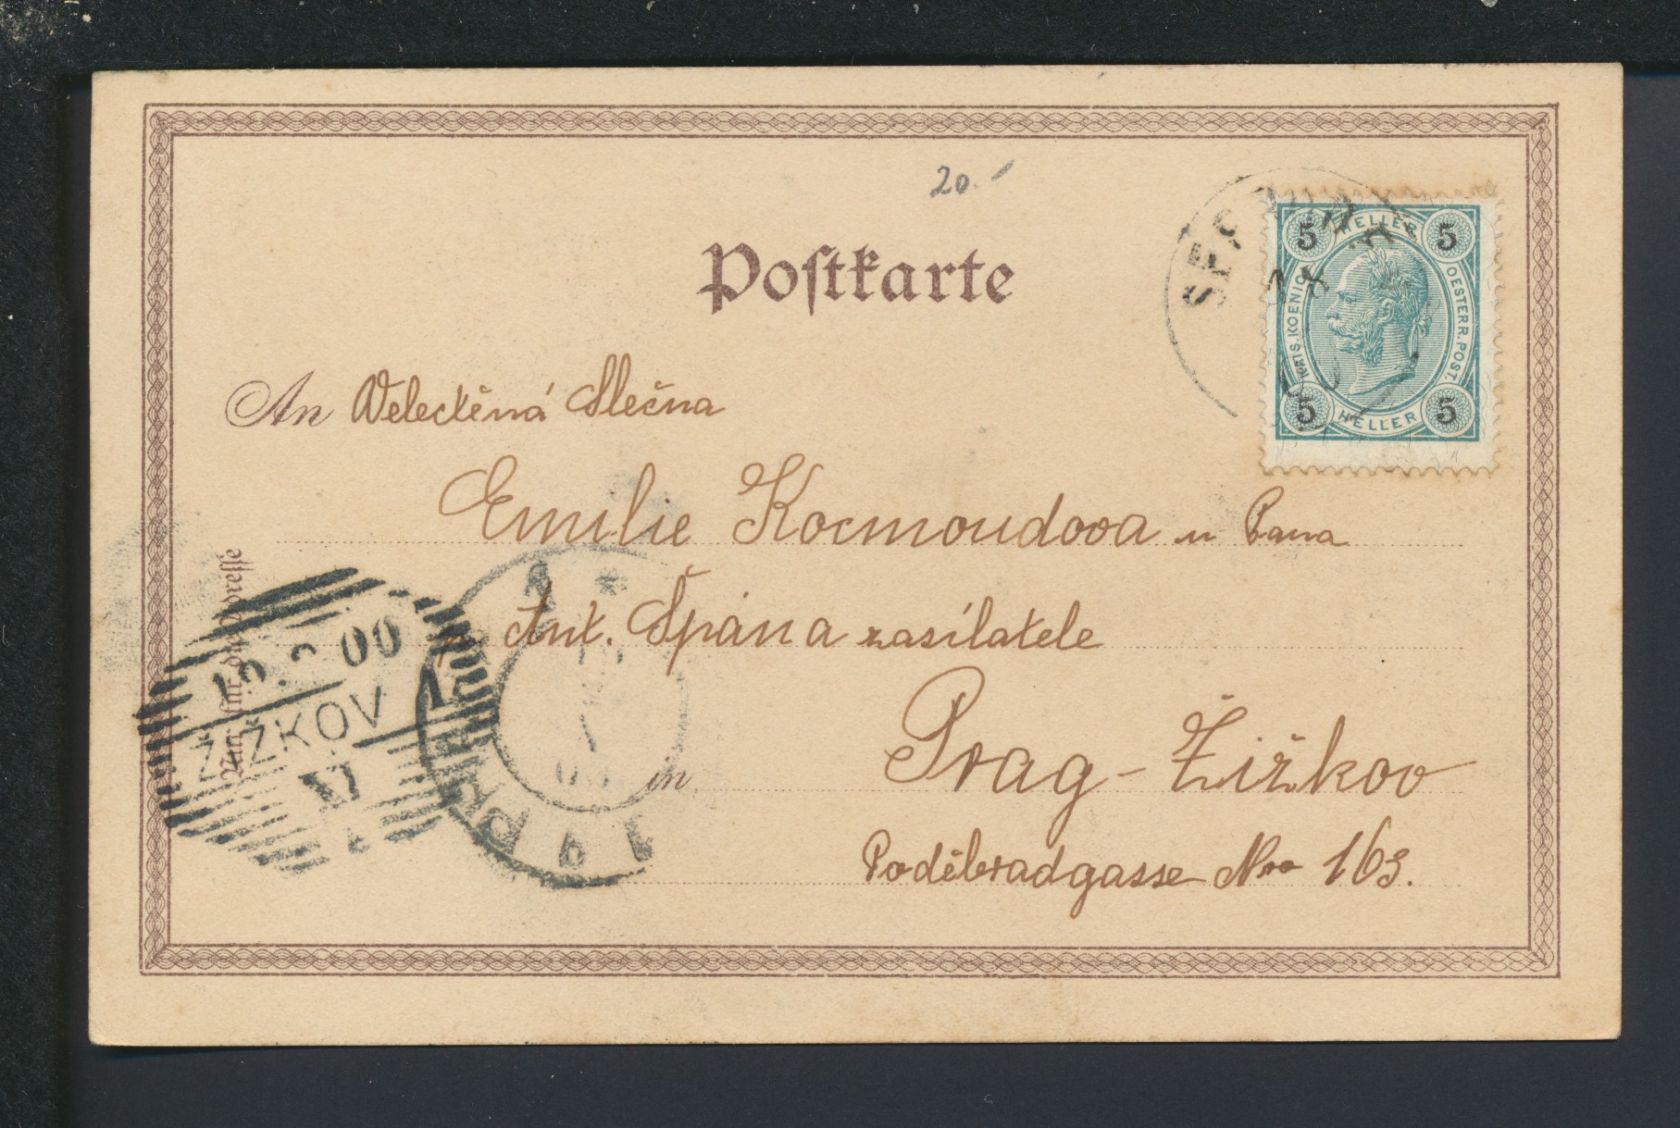 20.-
Postkarte
5 HELLER 5
KAIS. KOENIGL. OESTERR. POST.
5 HELLER 5
An Velectěná Slečna
Emilie Kocmoudova u Pana
Ant. Špána zasílatele
in Prag-Žižkov
Poděbradgasse Nro 163.
Nur für die Adresse
00
ŽIŽKOV